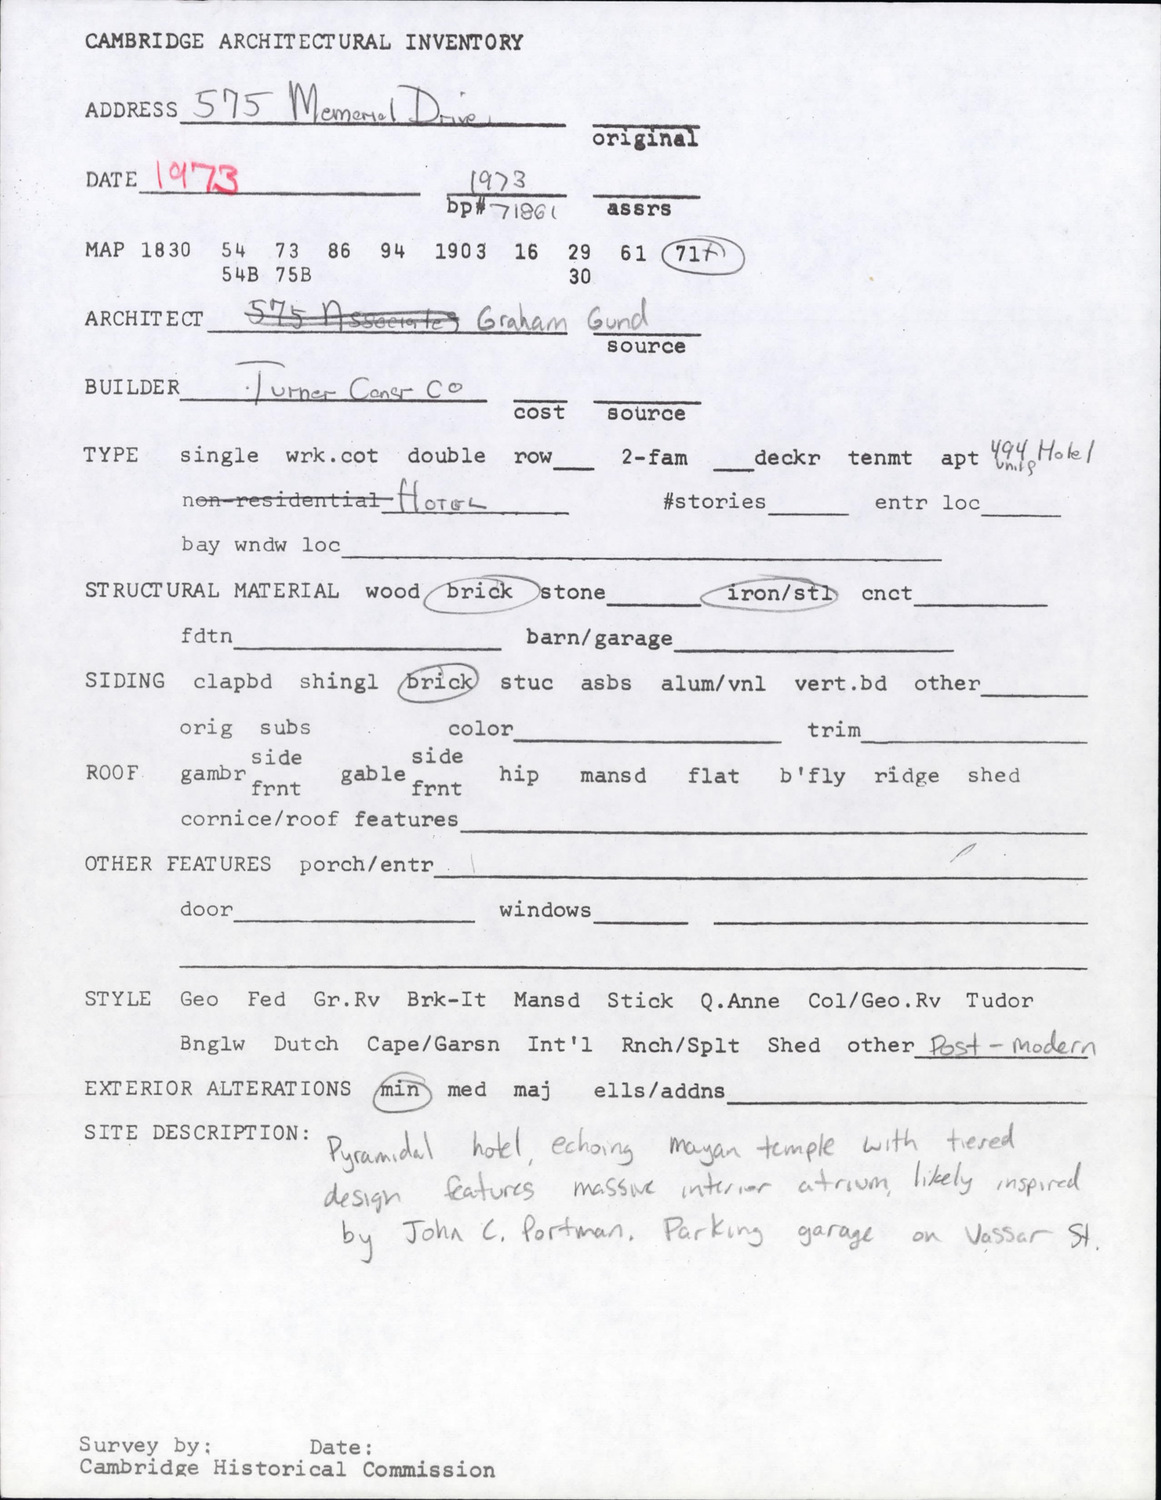 CAMBRIDGE ARCHITECTURAL INVENTORY
ADDRESS 575 Memorial Drive
original
DATE 1973 1973
bp# 71861 assrs
MAP 1830 54 73 86 94 1903 16 29 61 71+
54B 75B 30
ARCHITECT 575 Associates Graham Gund
source
BUILDER Turner Constr Co
cost source
TYPE single wrk.cot double row___ 2-fam ___deckr tenmt apt 494 units Hotel
non-residential HOTEL #stories______ entr loc______
bay wndw loc
STRUCTURAL MATERIAL wood brick stone______ iron/stl cnct
fdtn______ barn/garage
SIDING clapbd shingl brick stuc asbs alum/vnl vert.bd other
orig subs color______ trim
side side
ROOF gambr gable hip mansd flat b'fly ridge shed
frnt frnt
cornice/roof features
OTHER FEATURES porch/entr
door______ windows
STYLE Geo Fed Gr.Rv Brk-It Mansd Stick Q.Anne Col/Geo.Rv Tudor
Bnglw Dutch Cape/Garsn Int'l Rnch/Splt Shed other Post-modern
EXTERIOR ALTERATIONS min med maj ells/addns
SITE DESCRIPTION: Pyramidal hotel, echoing mayan temple with tiered
design features massive interior atrium, likely inspired
by John C. Portman. Parking garage on Vassar St.
Survey by: Date:
Cambridge Historical Commission